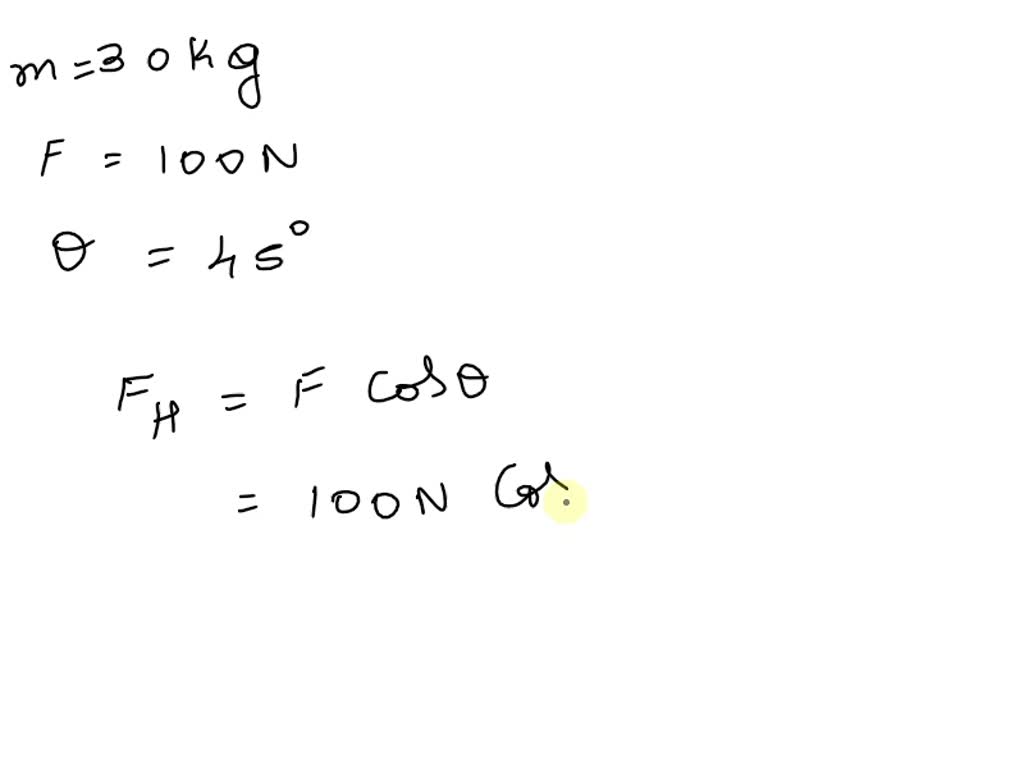 m = 30 kg
F = 100N
θ = 45°
F_H = F Cosθ
= 100N Cos